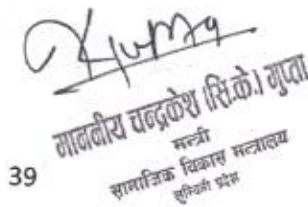 माननीय चन्द्रकेश (सि.के.) गुप्ता
मन्त्री
सामाजिक विकास मन्त्रालय
लुम्बिनी प्रदेश
39